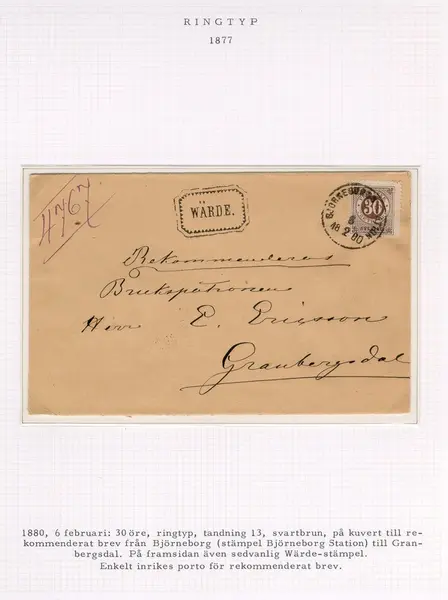 RINGTYP
1877
4767
WÄRDE.
BJÖRNEBORG
6
18 2 80
30
Rekommenderas
Brukspatronen
Herr E. Ericsson
Granbergsdal
1880, 6 februari: 30 öre, ringtyp, tandning 13, svartbrun, på kuvert till re-
kommenderat brev från Björneborg (stämpel Björneborg Station) till Gran-
bergsdal. På framsidan även sedvanlig Wärde-stämpel.
Enkelt inrikes porto för rekommenderat brev.